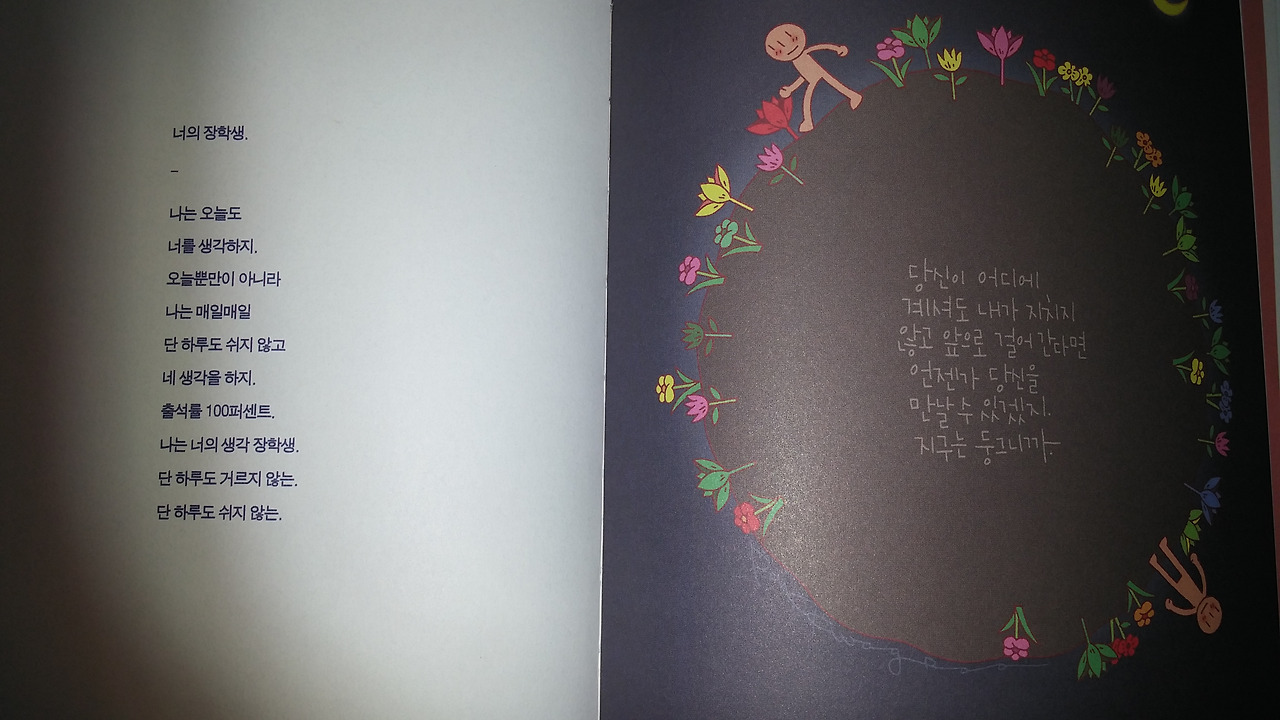 너의 장학생.
–
나는 오늘도
너를 생각하지.
오늘뿐만이 아니라
나는 매일매일
단 하루도 쉬지 않고
네 생각을 하지.
출석률 100퍼센트.
나는 너의 생각 장학생.
단 하루도 거르지 않는.
단 하루도 쉬지 않는.
당신이 어디에
계셔도 내가 지치지
않고 앞으로 걸어간다면
언젠가 당신을
만날 수 있겠지.
지구는 둥그니까.